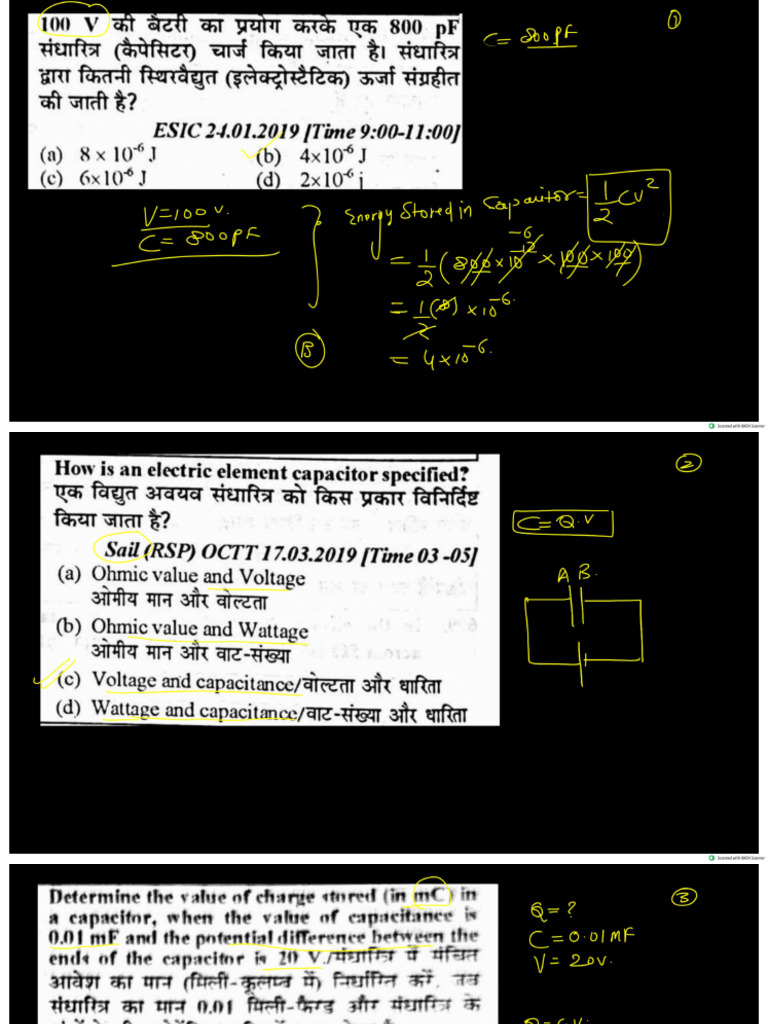 100 V की बैटरी का प्रयोग करके एक 800 pF
संधारित्र (कैपेसिटर) चार्ज किया जाता है। संधारित्र
द्वारा कितनी स्थिरवैद्युत (इलेक्ट्रोस्टैटिक) ऊर्जा संग्रहीत
की जाती है?
ESIC 24.01.2019 [Time 9:00-11:00]
(a) 8 × 10⁻⁶ J (b) 4×10⁻⁶ J
(c) 6×10⁻⁶ J (d) 2×10⁻⁶ j
1
C = 800PF
V=100V.
C = 800PF
Energy Stored in Capacitor = 1/2 CV²
= 1/2 (800×10⁻¹² × 100 × 100)
-6
= 1/2 (8) × 10⁻⁶.
= 4×10⁻⁶.
B
Scanned with OKEN Scanner
How is an electric element capacitor specified?
एक विद्युत अवयव संधारित्र को किस प्रकार विनिर्दिष्ट
किया जाता है?
Sail (RSP) OCTT 17.03.2019 [Time 03 -05]
(a) Ohmic value and Voltage
ओमीय मान और वोल्टता
(b) Ohmic value and Wattage
ओमीय मान और वाट-संख्या
(c) Voltage and capacitance/वोल्टता और धारिता
(d) Wattage and capacitance/वाट-संख्या और धारिता
2
C = Q.V
A B.
Scanned with OKEN Scanner
Determine the value of charge stored (in mC) in
a capacitor, when the value of capacitance is
0.01 mF and the potential difference between the
ends of the capacitor is 20 V./संधारित्र में संचित
आवेश का मान (मिली-कूलम्ब में) निर्धारित करें, जब
संधारित्र का मान 0.01 मिली-फैरड और संधारित्र के
3
Q = ?
C = 0.01MF
V = 20V.